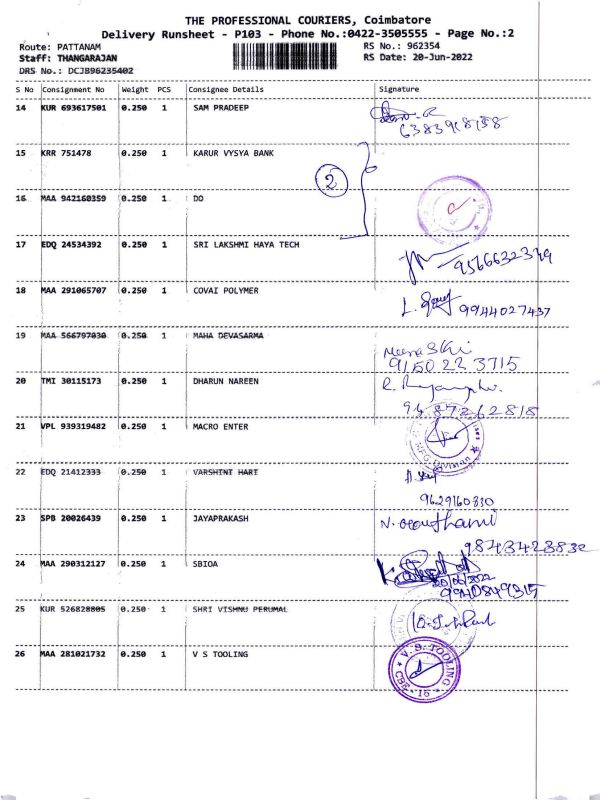 THE PROFESSIONAL COURIERS, Coimbatore
Delivery Runsheet - P103 - Phone No.:0422-3505555 - Page No.:2
Route: PATTANAM RS No.: 962354
Staff: THANGARAJAN RS Date: 20-Jun-2022
DRS No.: DCJB96235402
S No Consignment No Weight PCS Consignee Details Signature
14 KUR 693617501 0.250 1 SAM PRADEEP
6383918138
15 KRR 751478 0.250 1 KARUR VYSYA BANK
2
16 MAA 942160359 0.250 1 DO
17 EDQ 24534392 0.250 1 SRI LAKSHMI HAYA TECH
9566632349
18 MAA 291065707 0.250 1 COVAI POLYMER
9944027437
19 MAA 566797030 0.250 1 MAHA DEVASARMA
9150223715
20 TMI 30115173 0.250 1 DHARUN NAREEN
9487262818
21 VPL 939319482 0.250 1 MACRO ENTER
22 EDQ 21412333 0.250 1 VARSHINI HARI
9629160830
23 SPB 20026439 0.250 1 JAYAPRAKASH
N. Gouthami
9843428832
24 MAA 290312127 0.250 1 SBIOA
20/06/2022
9940849315
25 KUR 526828805 0.250 1 SHRI VISHNU PERUMAL
26 MAA 281021732 0.250 1 V S TOOLING
V.S. TOOLING
CBE - 16